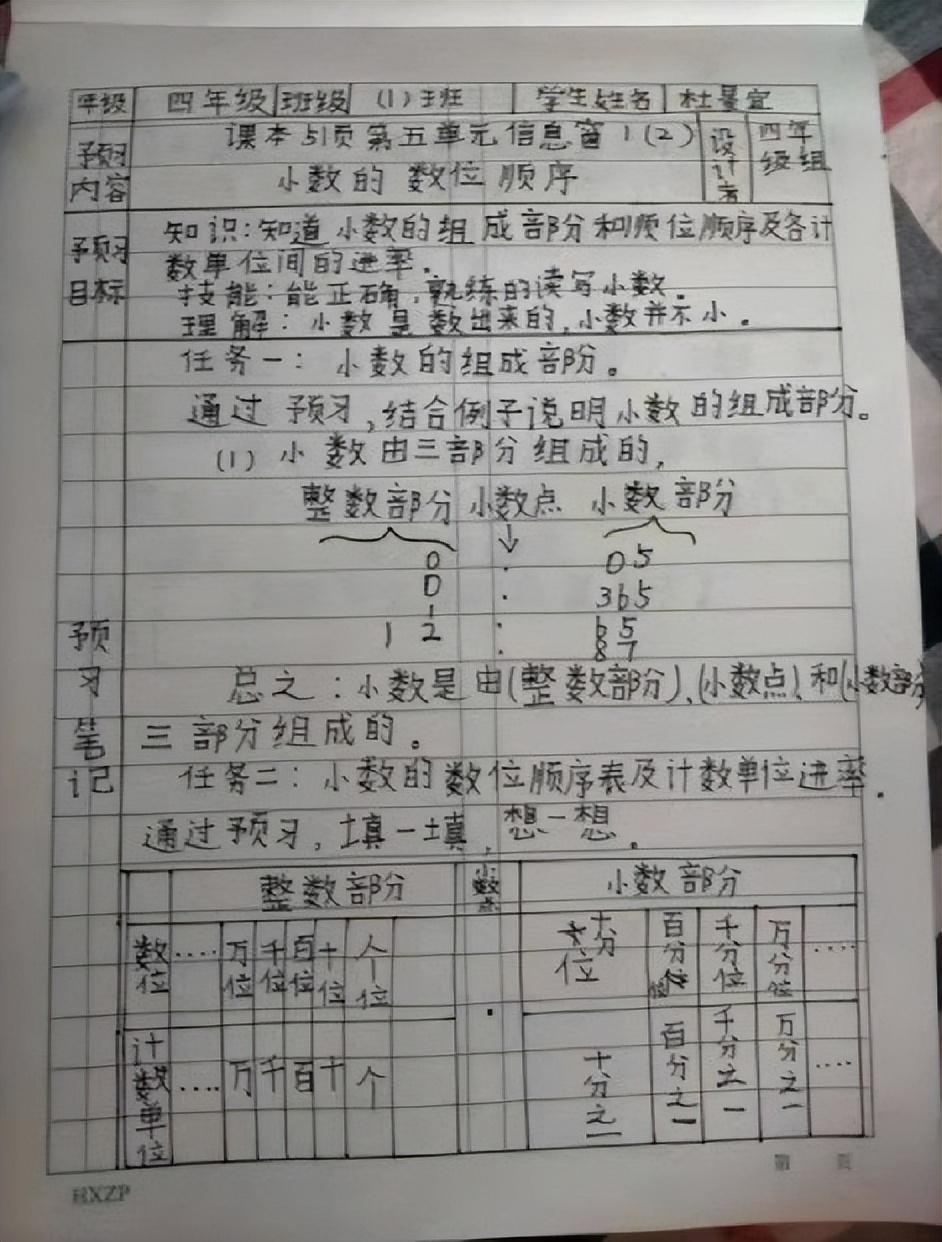 年级 四年级 班级 (1)班 学生姓名 杜景宜
预习内容 课本51页第五单元信息窗1(2) 设计者 四年级组
小数的数位顺序
预习目标 知识:知道小数的组成部分和顺位顺序及各计
数单位间的进率.
技能:能正确,熟练的读写小数.
理解:小数是数出来的,小数并不小。
预习笔记
任务一:小数的组成部份。
通过预习,结合例子说明小数的组成部分。
(1)小数由三部分组成的,
整数部分 小数点 小数部分
↓
0 . 05
0 . 365
1 . 65
12 . 87
总之:小数是由(整数部分)、(小数点)、和(小数部分)
三部分组成的。
任务二:小数的数位顺序表及计数单位进率.
通过预习,填一填,想一想.
整数部分 小数点 小数部分
数位 ..... 万位 千位 百位 十位 个位 . 十分位 百分位 千分位 万分位 ....
计数单位 ..... 万 千 百 十 个 十分之一 百分之一 千分之一 万分之一 ....
第 页
HXZP